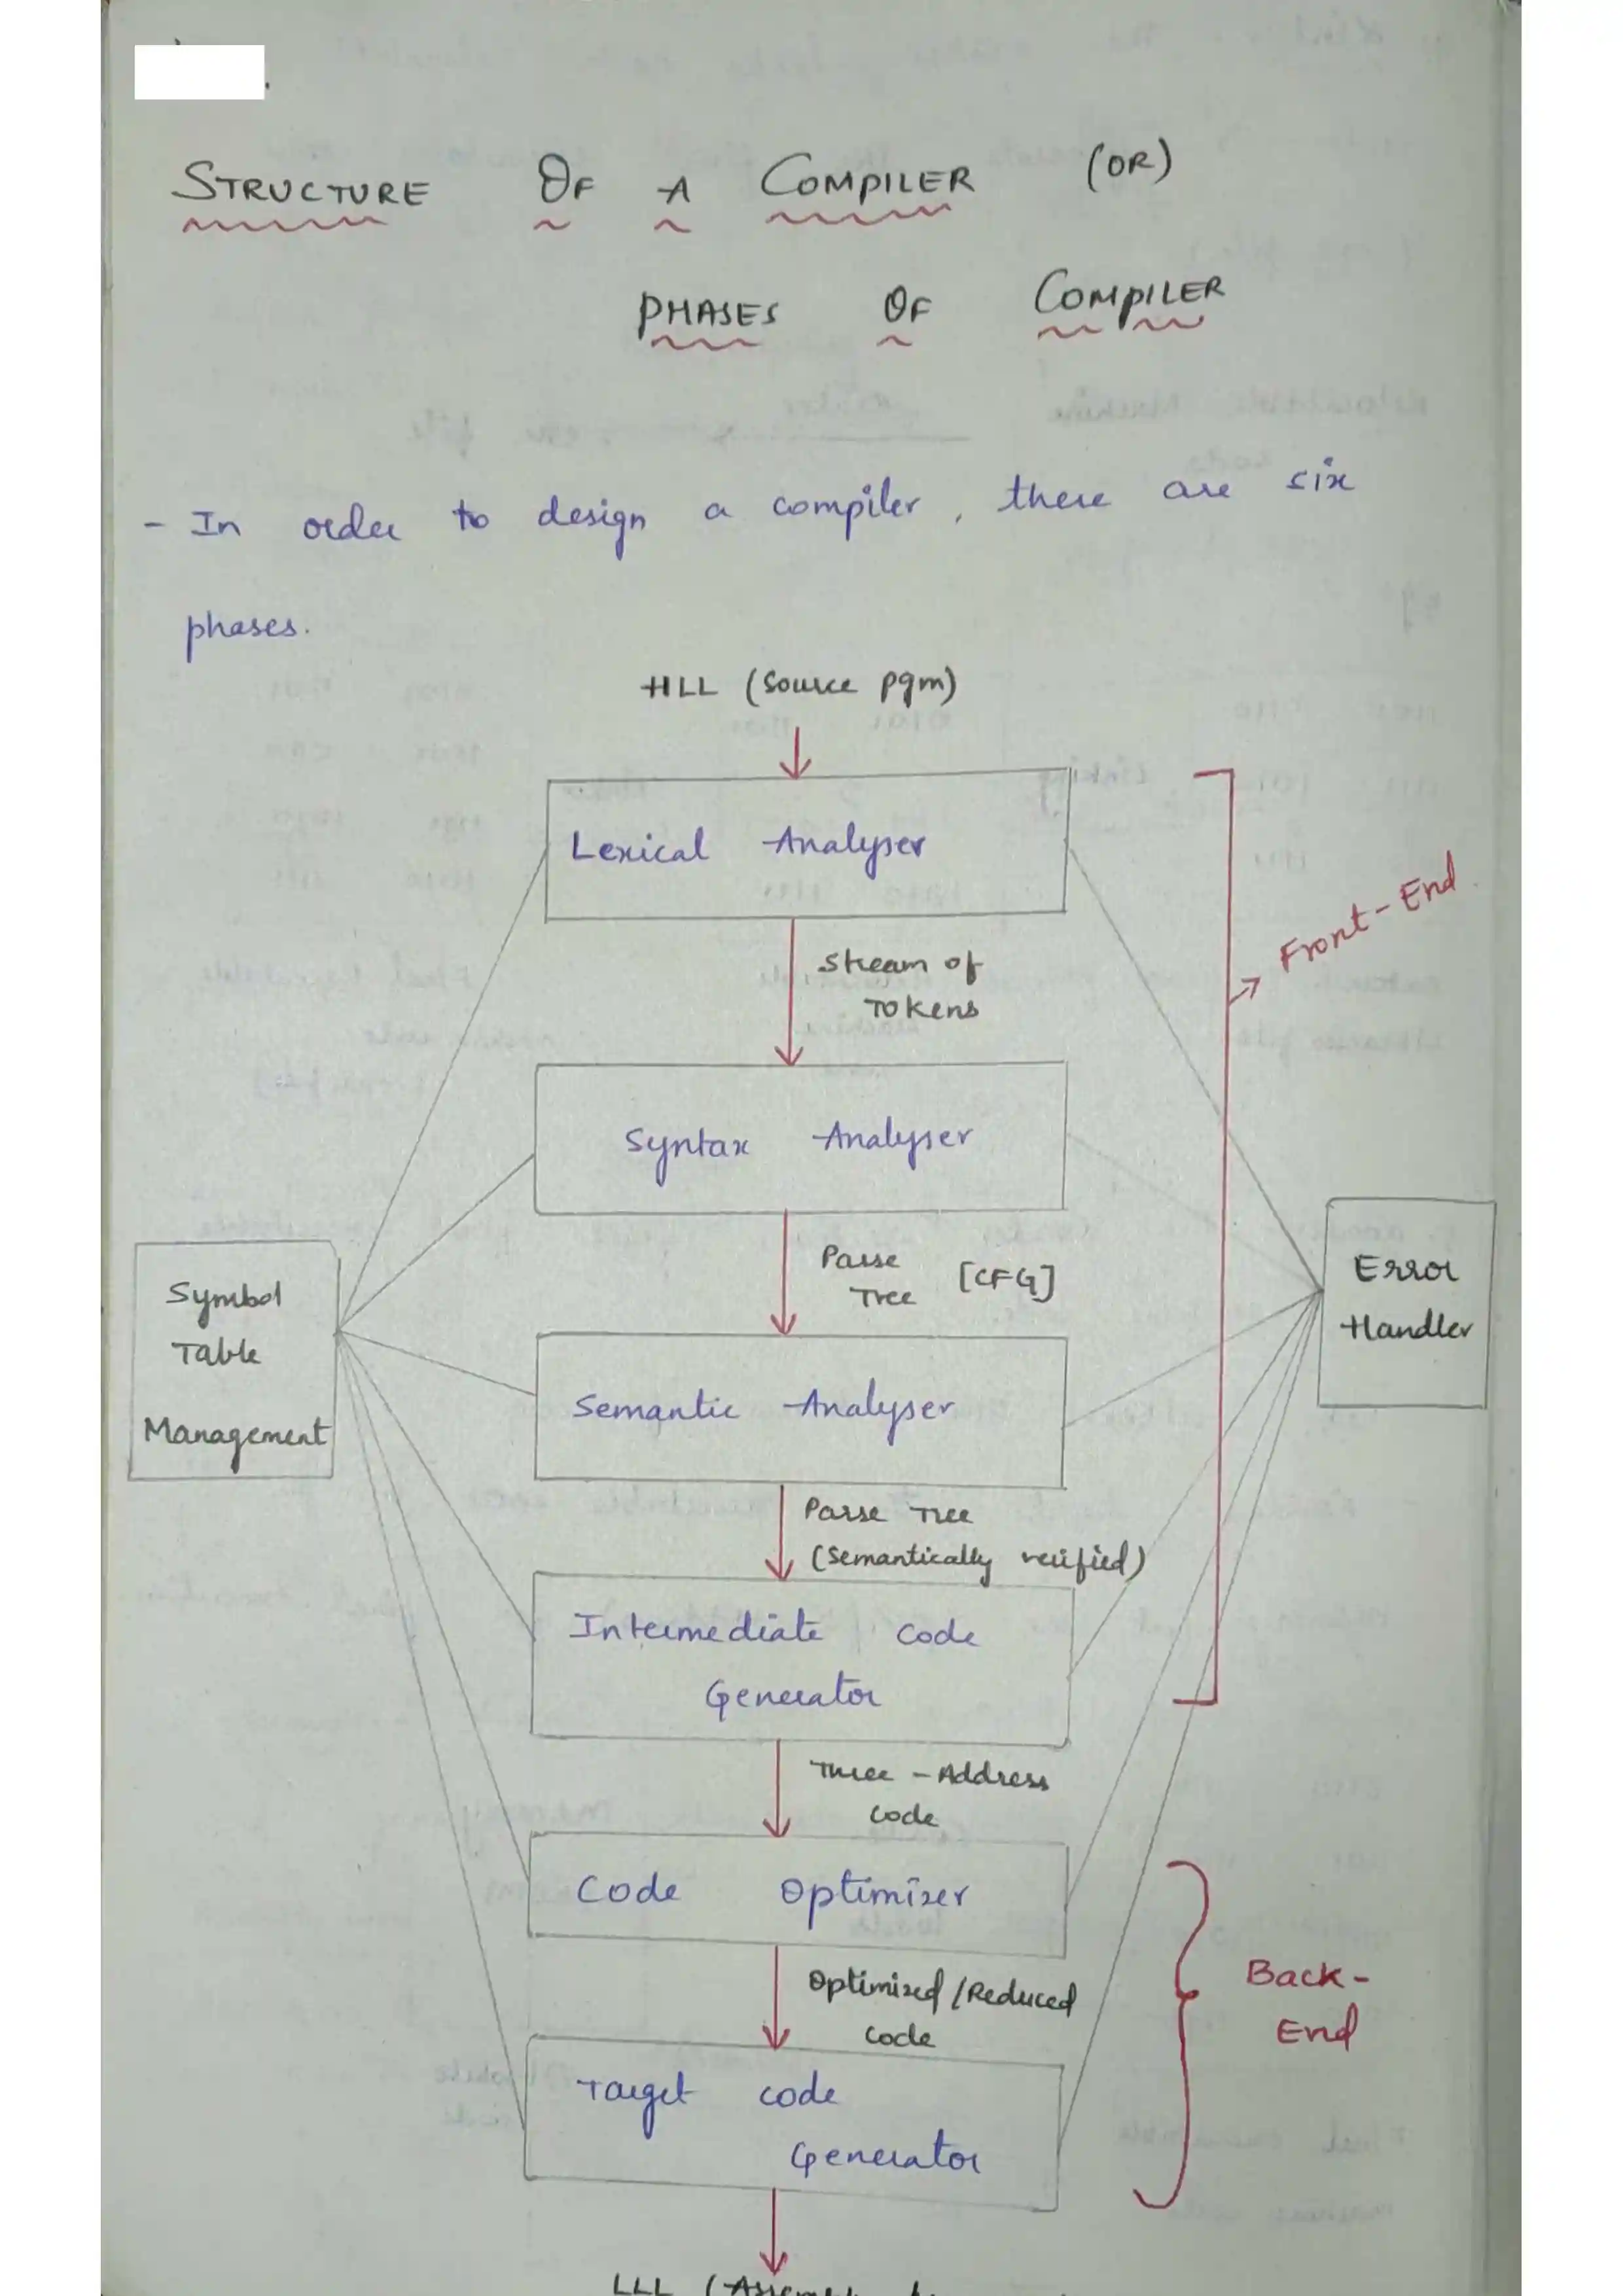 STRUCTURE OF A COMPILER (OR)
PHASES OF COMPILER
- In order to design a compiler, there are six
phases.
HLL (Source pgm)
Lexical Analyser
Stream of
Tokens
Front-End
Syntax Analyser
Parse
Tree [CFG]
Symbol
Table
Management
Error
Handler
Semantic Analyser
Parse Tree
(Semantically verified)
Intermediate Code
Generator
Three-Address
Code
Code Optimizer
Optimized/Reduced
Code
Back-
End
Target code
Generator
LLL (